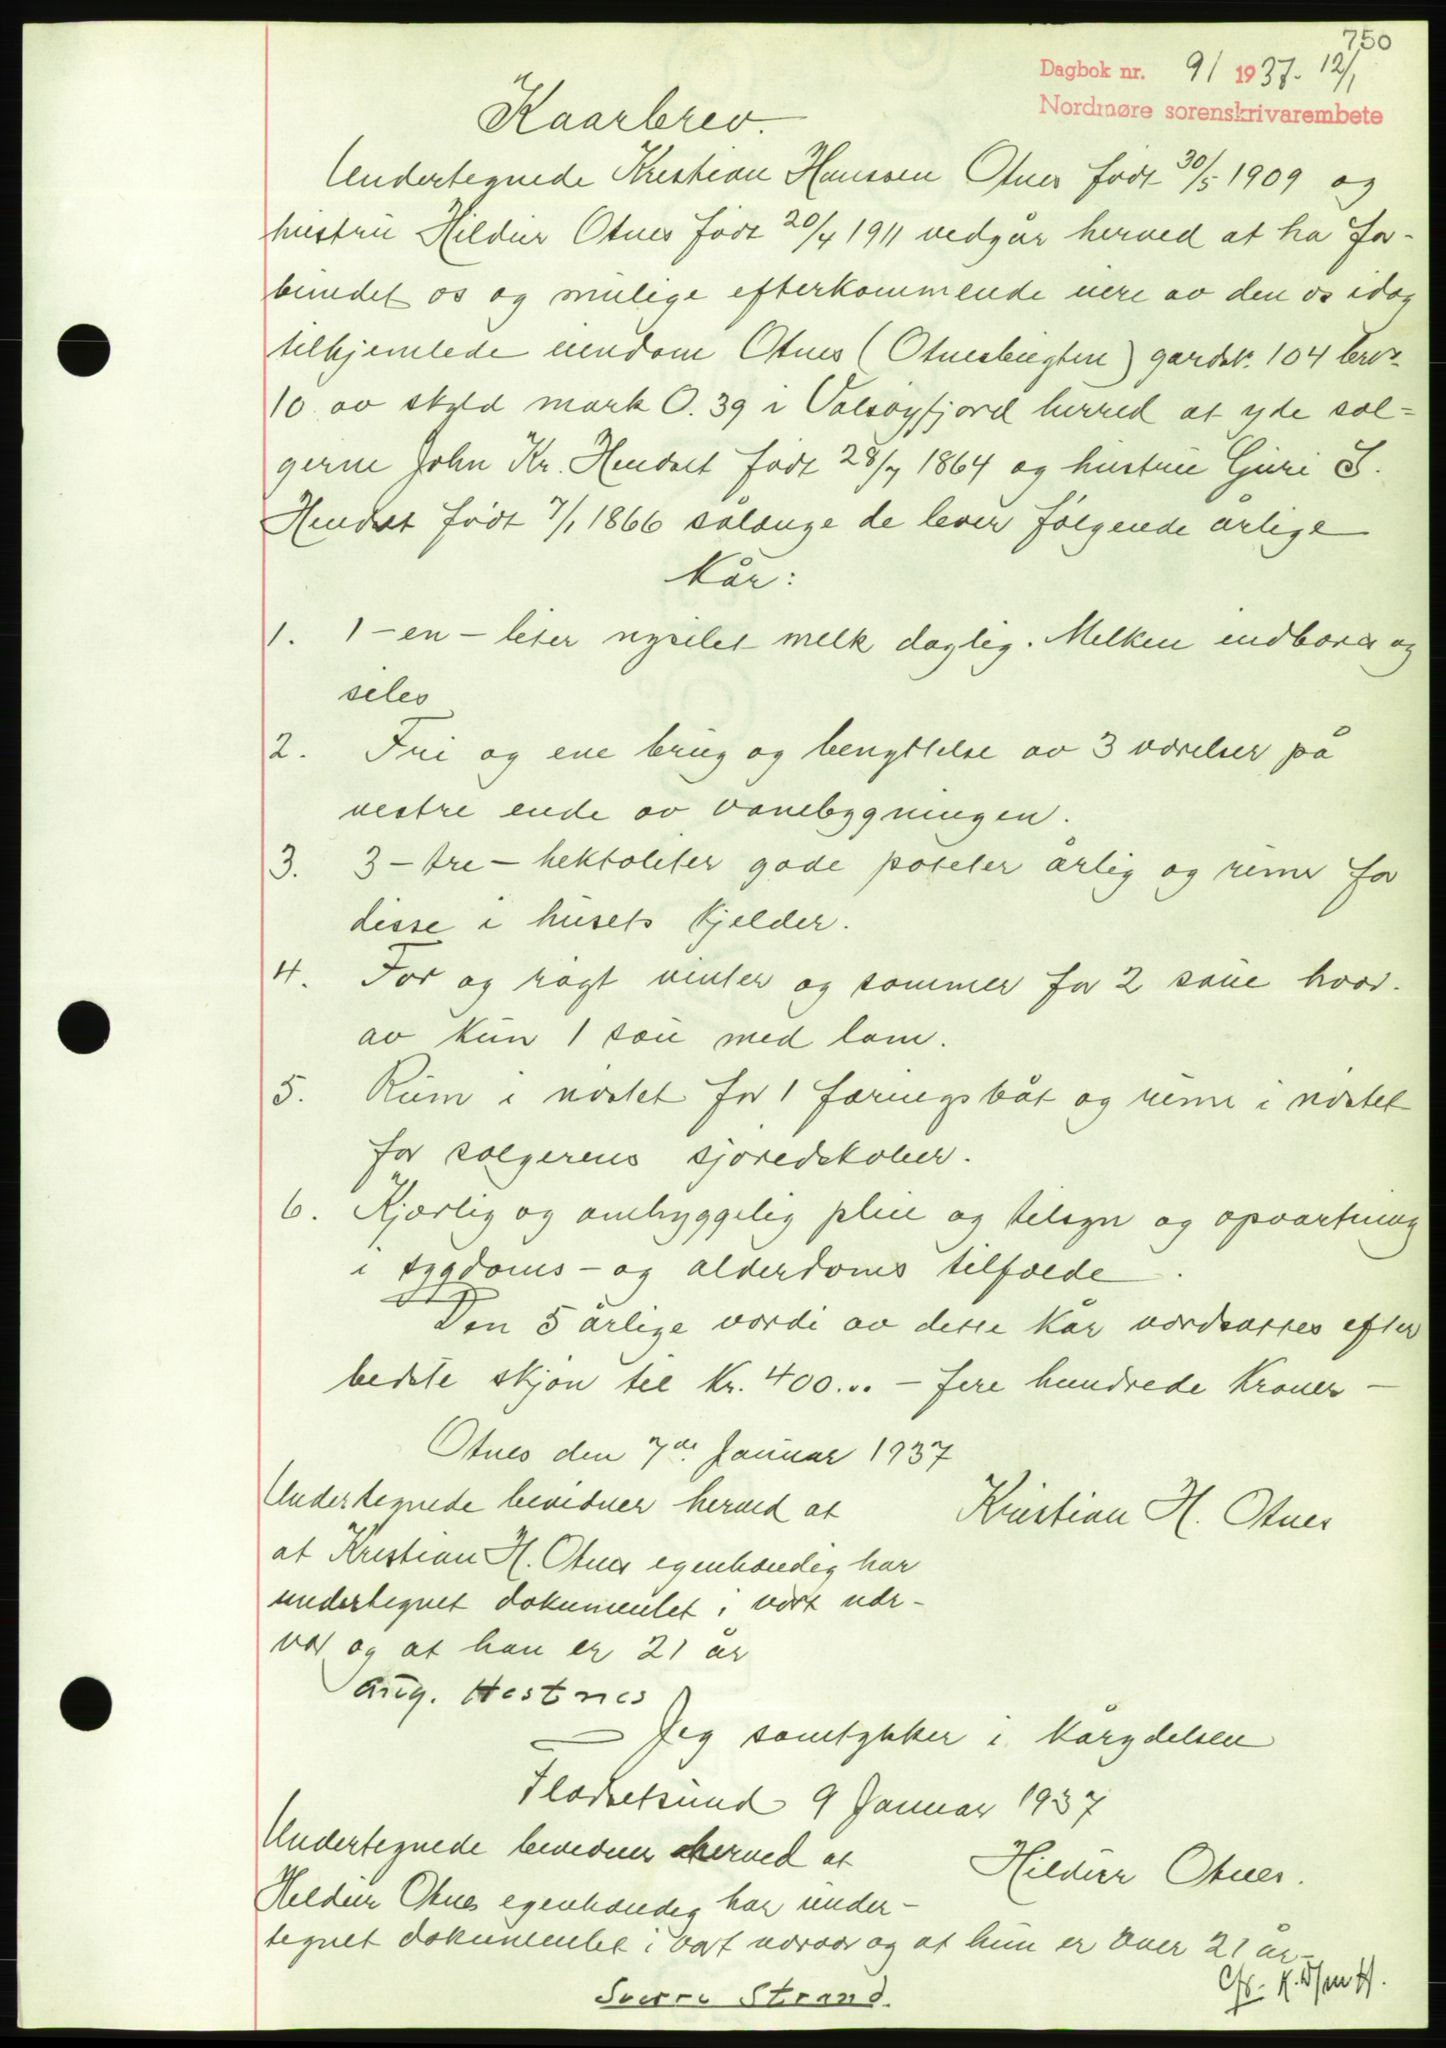 750
Dagbok nr. 91 1937. 12/1
Nordmøre sorenskrivarembete
Kaarbrev.
Undertegnede Kristian Hanssen Otnes født 30/5 1909 og
hustru Hildur Otnes født 20/4 1911 vedgår herved at ha for-
bundet os og mulige efterkommende eiere av den os idag
tilhjemlede eiendom Otnes (Otnesbugten) gardsnr. 104 brnr.
10 av skyld mark 0.39 i Valsøyfjord herred at yde sel-
gerne John Kr. Hendset født 28/7 1864 og hustru Guri S.
Hendset født 7/1 1866 sålænge de lever følgende årlige
Kår:
1. 1-en-liter nysilet melk daglig. Melken indbæres og
siles
2. Fri og ene brug og benyttelse av 3 værelser på
vestre ende av vånebygningen.
3. 3-tre-hektoliter gode poteter årlig og rum for
disse i husets kjelder.
4. For og røgt vinter og sommer for 2 saue hvor-
av kun 1 sau med lam.
5. Rum i nøstet for 1 færingsbåt og rum i nøstet
for selgerens sjøredskaber.
6. Kjærlig og omhyggelig pleie og tilsyn og opvartning
i sygdoms- og alderdoms tilfælde.
Den 5 årlige værdi av dette kår værdsættes efter
bedste skjøn til kr. 400.00 - fire hundrede kroner -
Otnes den 7de Januar 1937
Undertegnede bevidner herved at
Kristian H. Otnes
at Kristian H. Otnes egenhændig har
undertegnet dokumentet i vort nær-
vær og at han er 21 år
Aug. Hestnes
Jeg samtykker i kårydelsen
Flødsetsund 9 Januar 1937
Undertegnede bevidner herved at
Hildur Otnes.
Hildur Otnes egenhændig har under-
tegnet dokumentet i vort nærvær og at hun er over 21 år-
Sverre Strand.